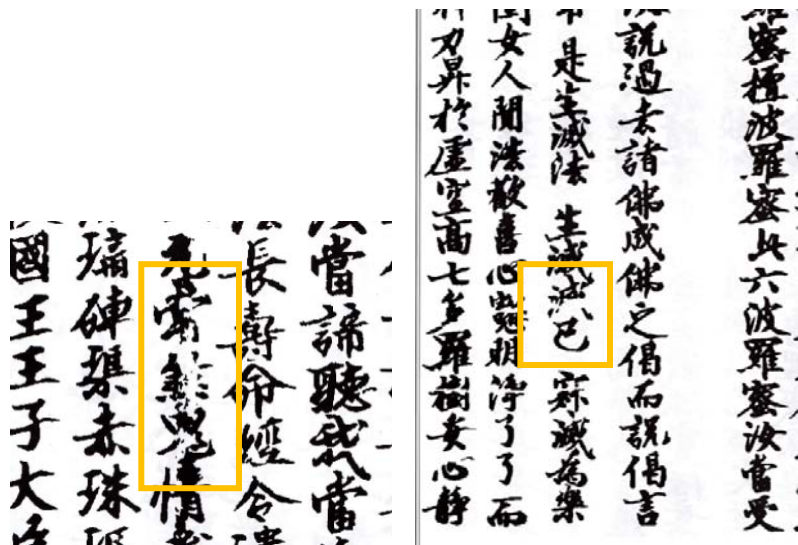 當諦聽我當
長壽命經今
情
璃硨磲赤珠
國王王子大
羅蜜檀波羅蜜此六波羅蜜汝當受
說過去諸佛成佛之偈而說偈言
是生滅法 生滅滅已 寂滅為樂
女人聞法歡喜心 明淨了了而
力昇於虛空高七多羅樹安心靜